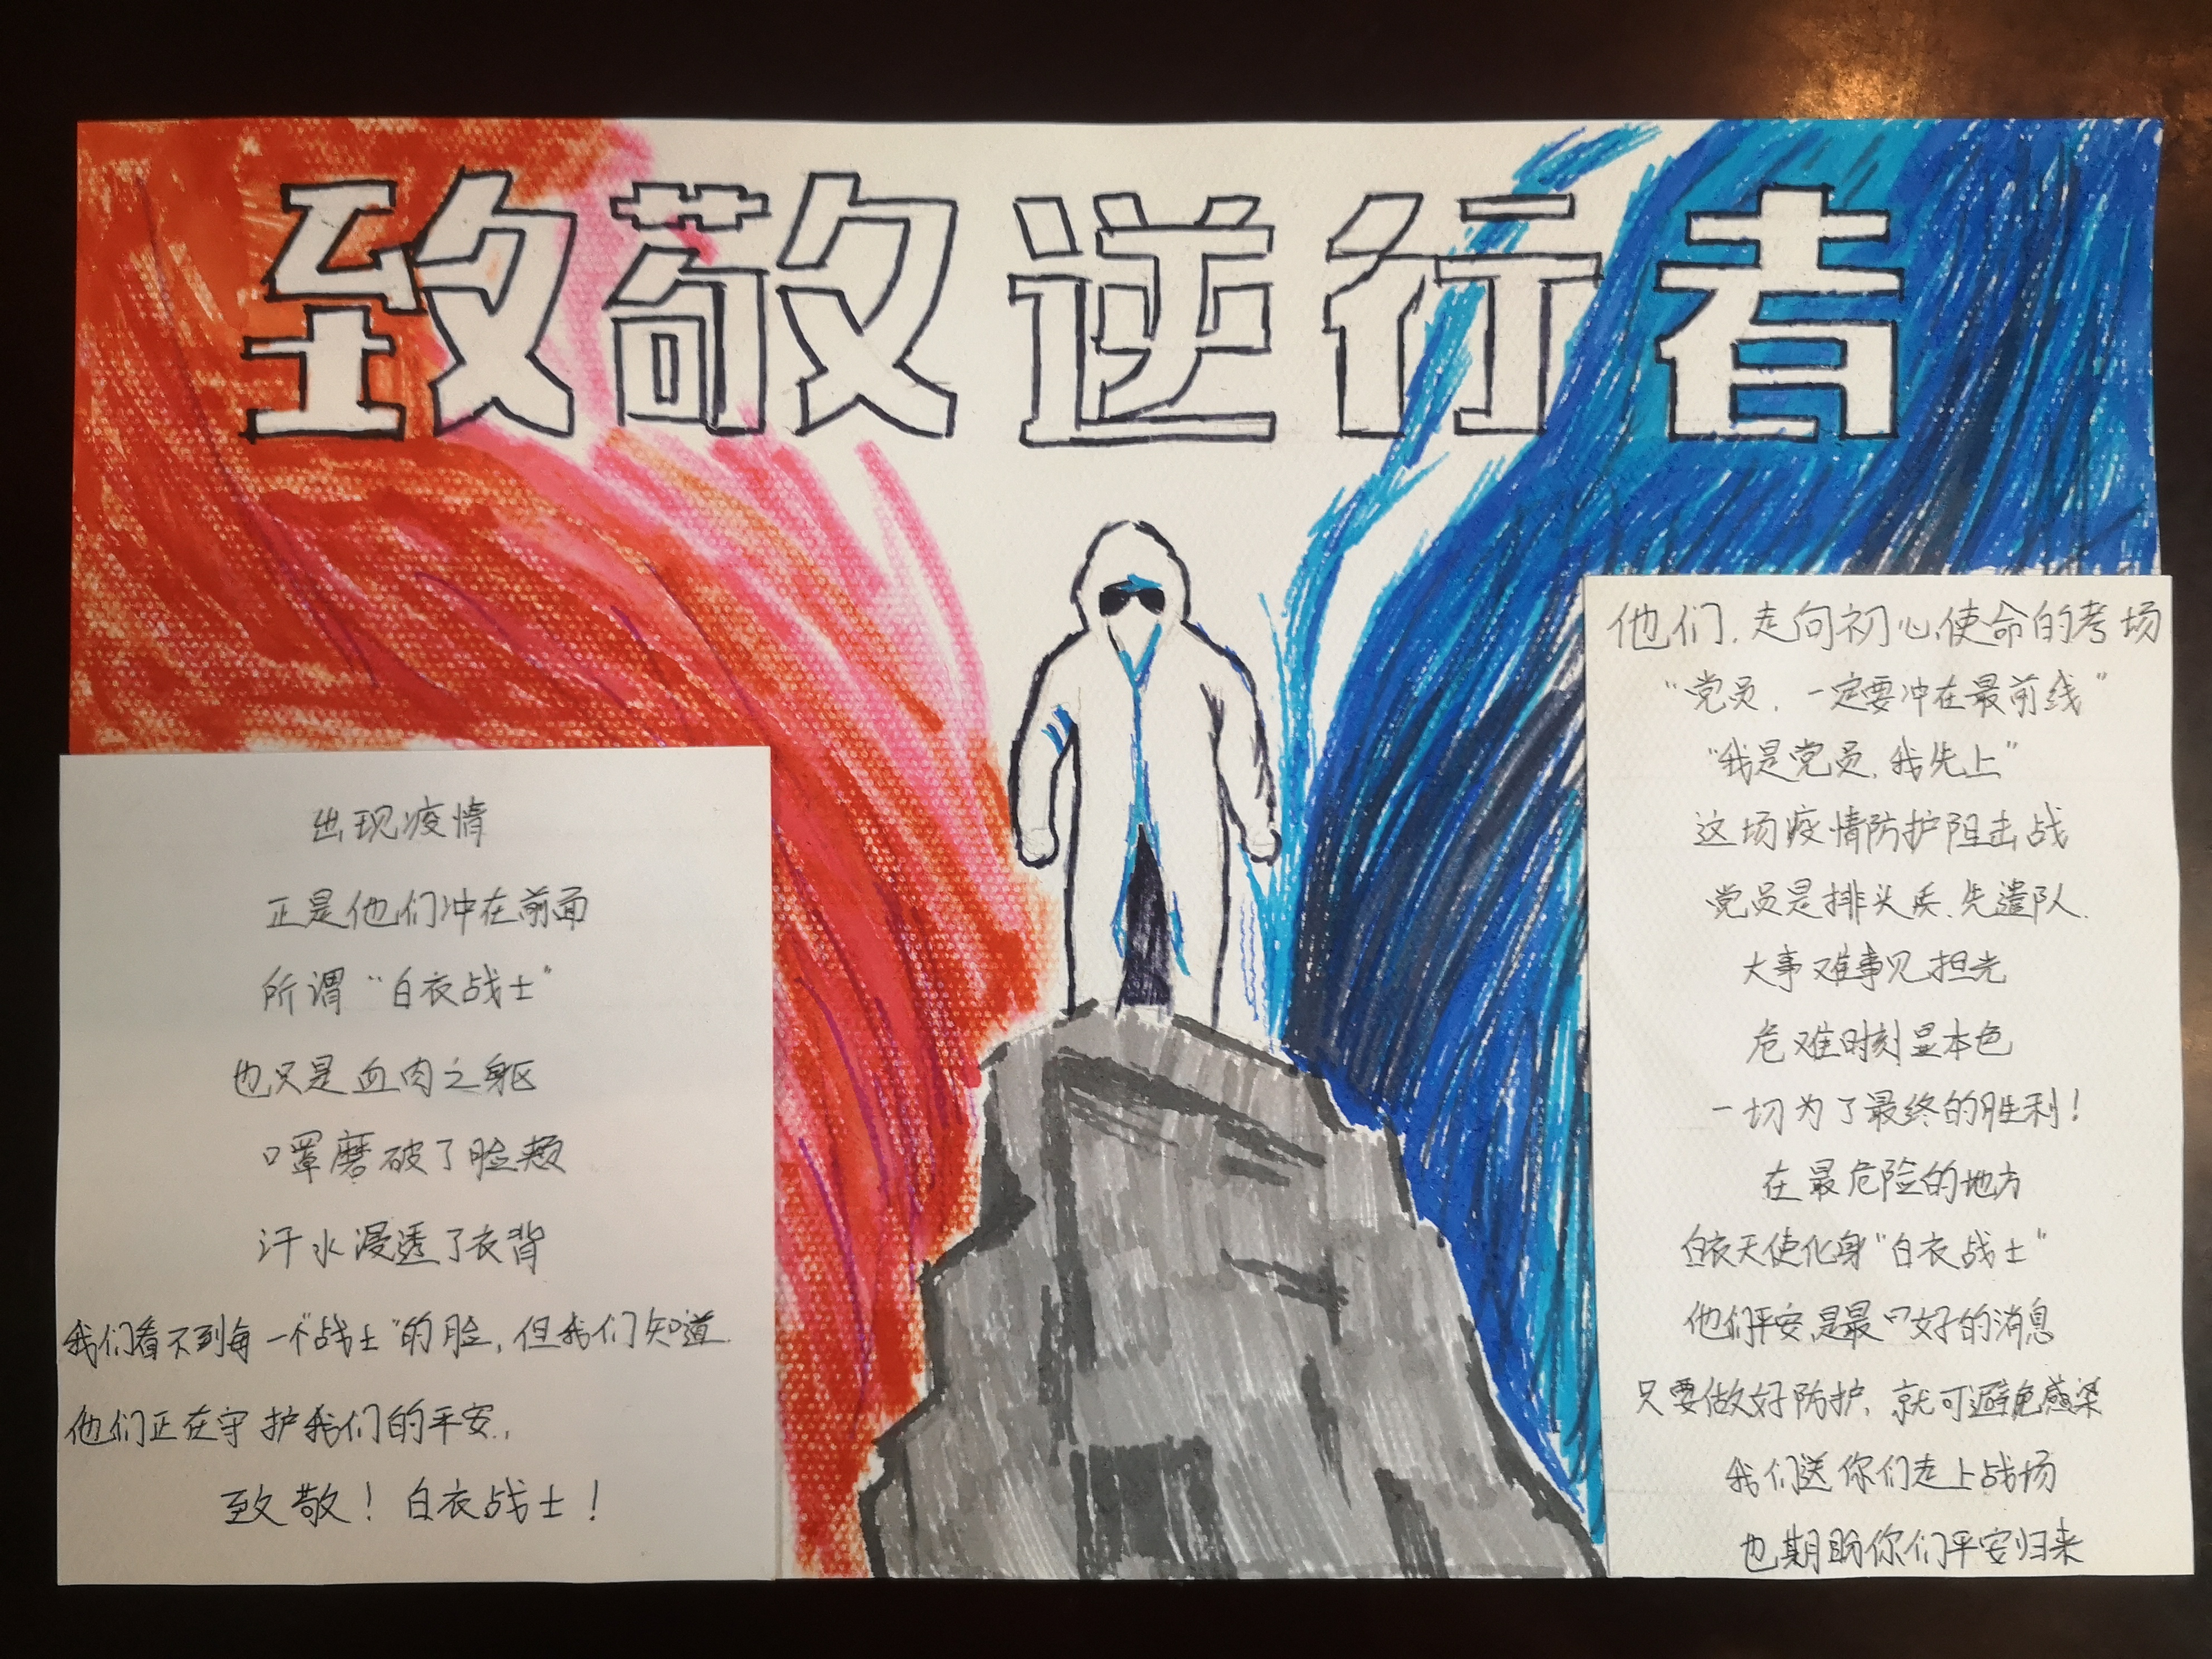 致敬逆行者
出现疫情
正是他们冲在前面
所谓“白衣战士”
也只是血肉之躯
口罩磨破了脸颊
汗水浸透了衣背
我们看不到每一个“战士”的脸，但我们知道
他们正在守护我们的平安，
致敬！白衣战士！
他们，走向初心使命的考场
“党员，一定要冲在最前线”
“我是党员，我先上”
这场疫情防护阻击战
党员是排头兵、先遣队，
大事难事见担光
危难时刻显本色
一切为了最终的胜利！
在最危险的地方
白衣天使化身“白衣战士”
他们平安，是最口好的消息
只要做好防护，就可避免感染
我们送你们走上战场
也期盼你们平安归来